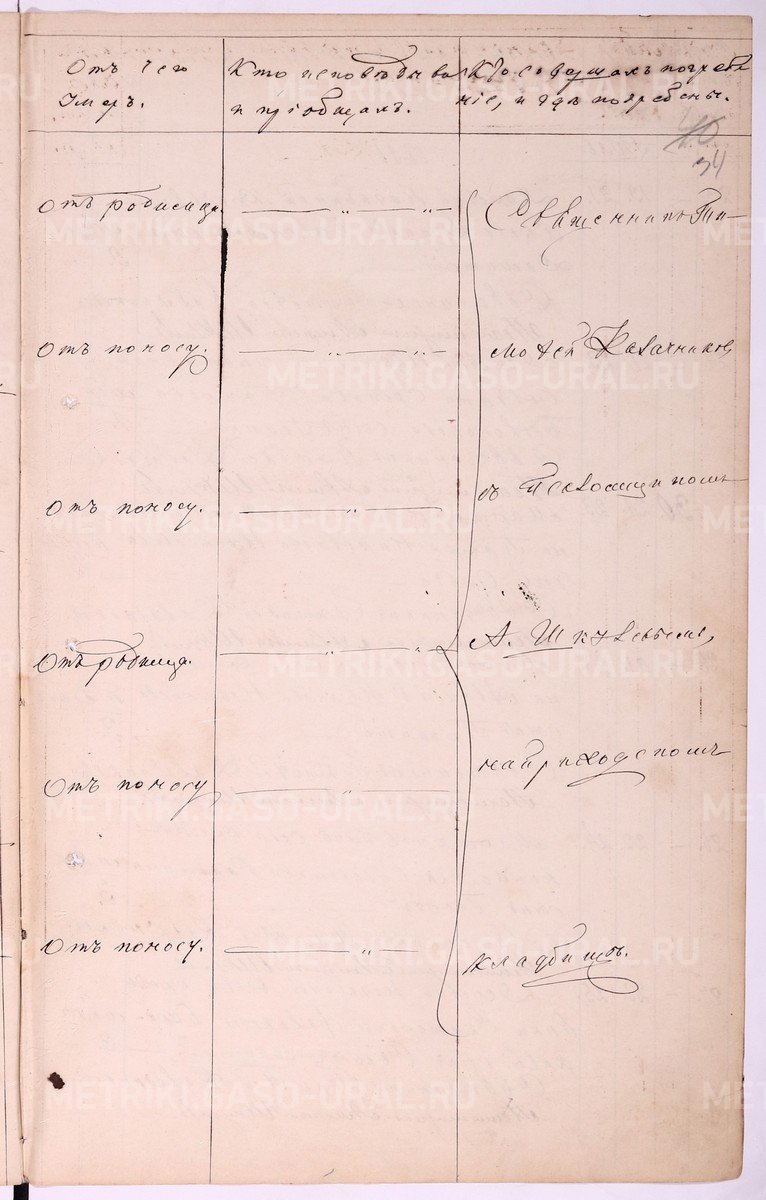 Отъ чего
умеръ.
Кто исповѣдывалъ
и пріобщалъ.
Кто совершалъ погребе
ніе, и гдѣ погребены.
40
34
Отъ родимца.
Отъ поносу.
Отъ поносу.
Отъ родимца.
Отъ поносу
Отъ поносу.
Священникъ Ти-
моѳей Казачниковъ
съ Псаломщикомъ
А.
на приходскомъ
кладбищѣ.
METRIKI.GASO-URAL.RU